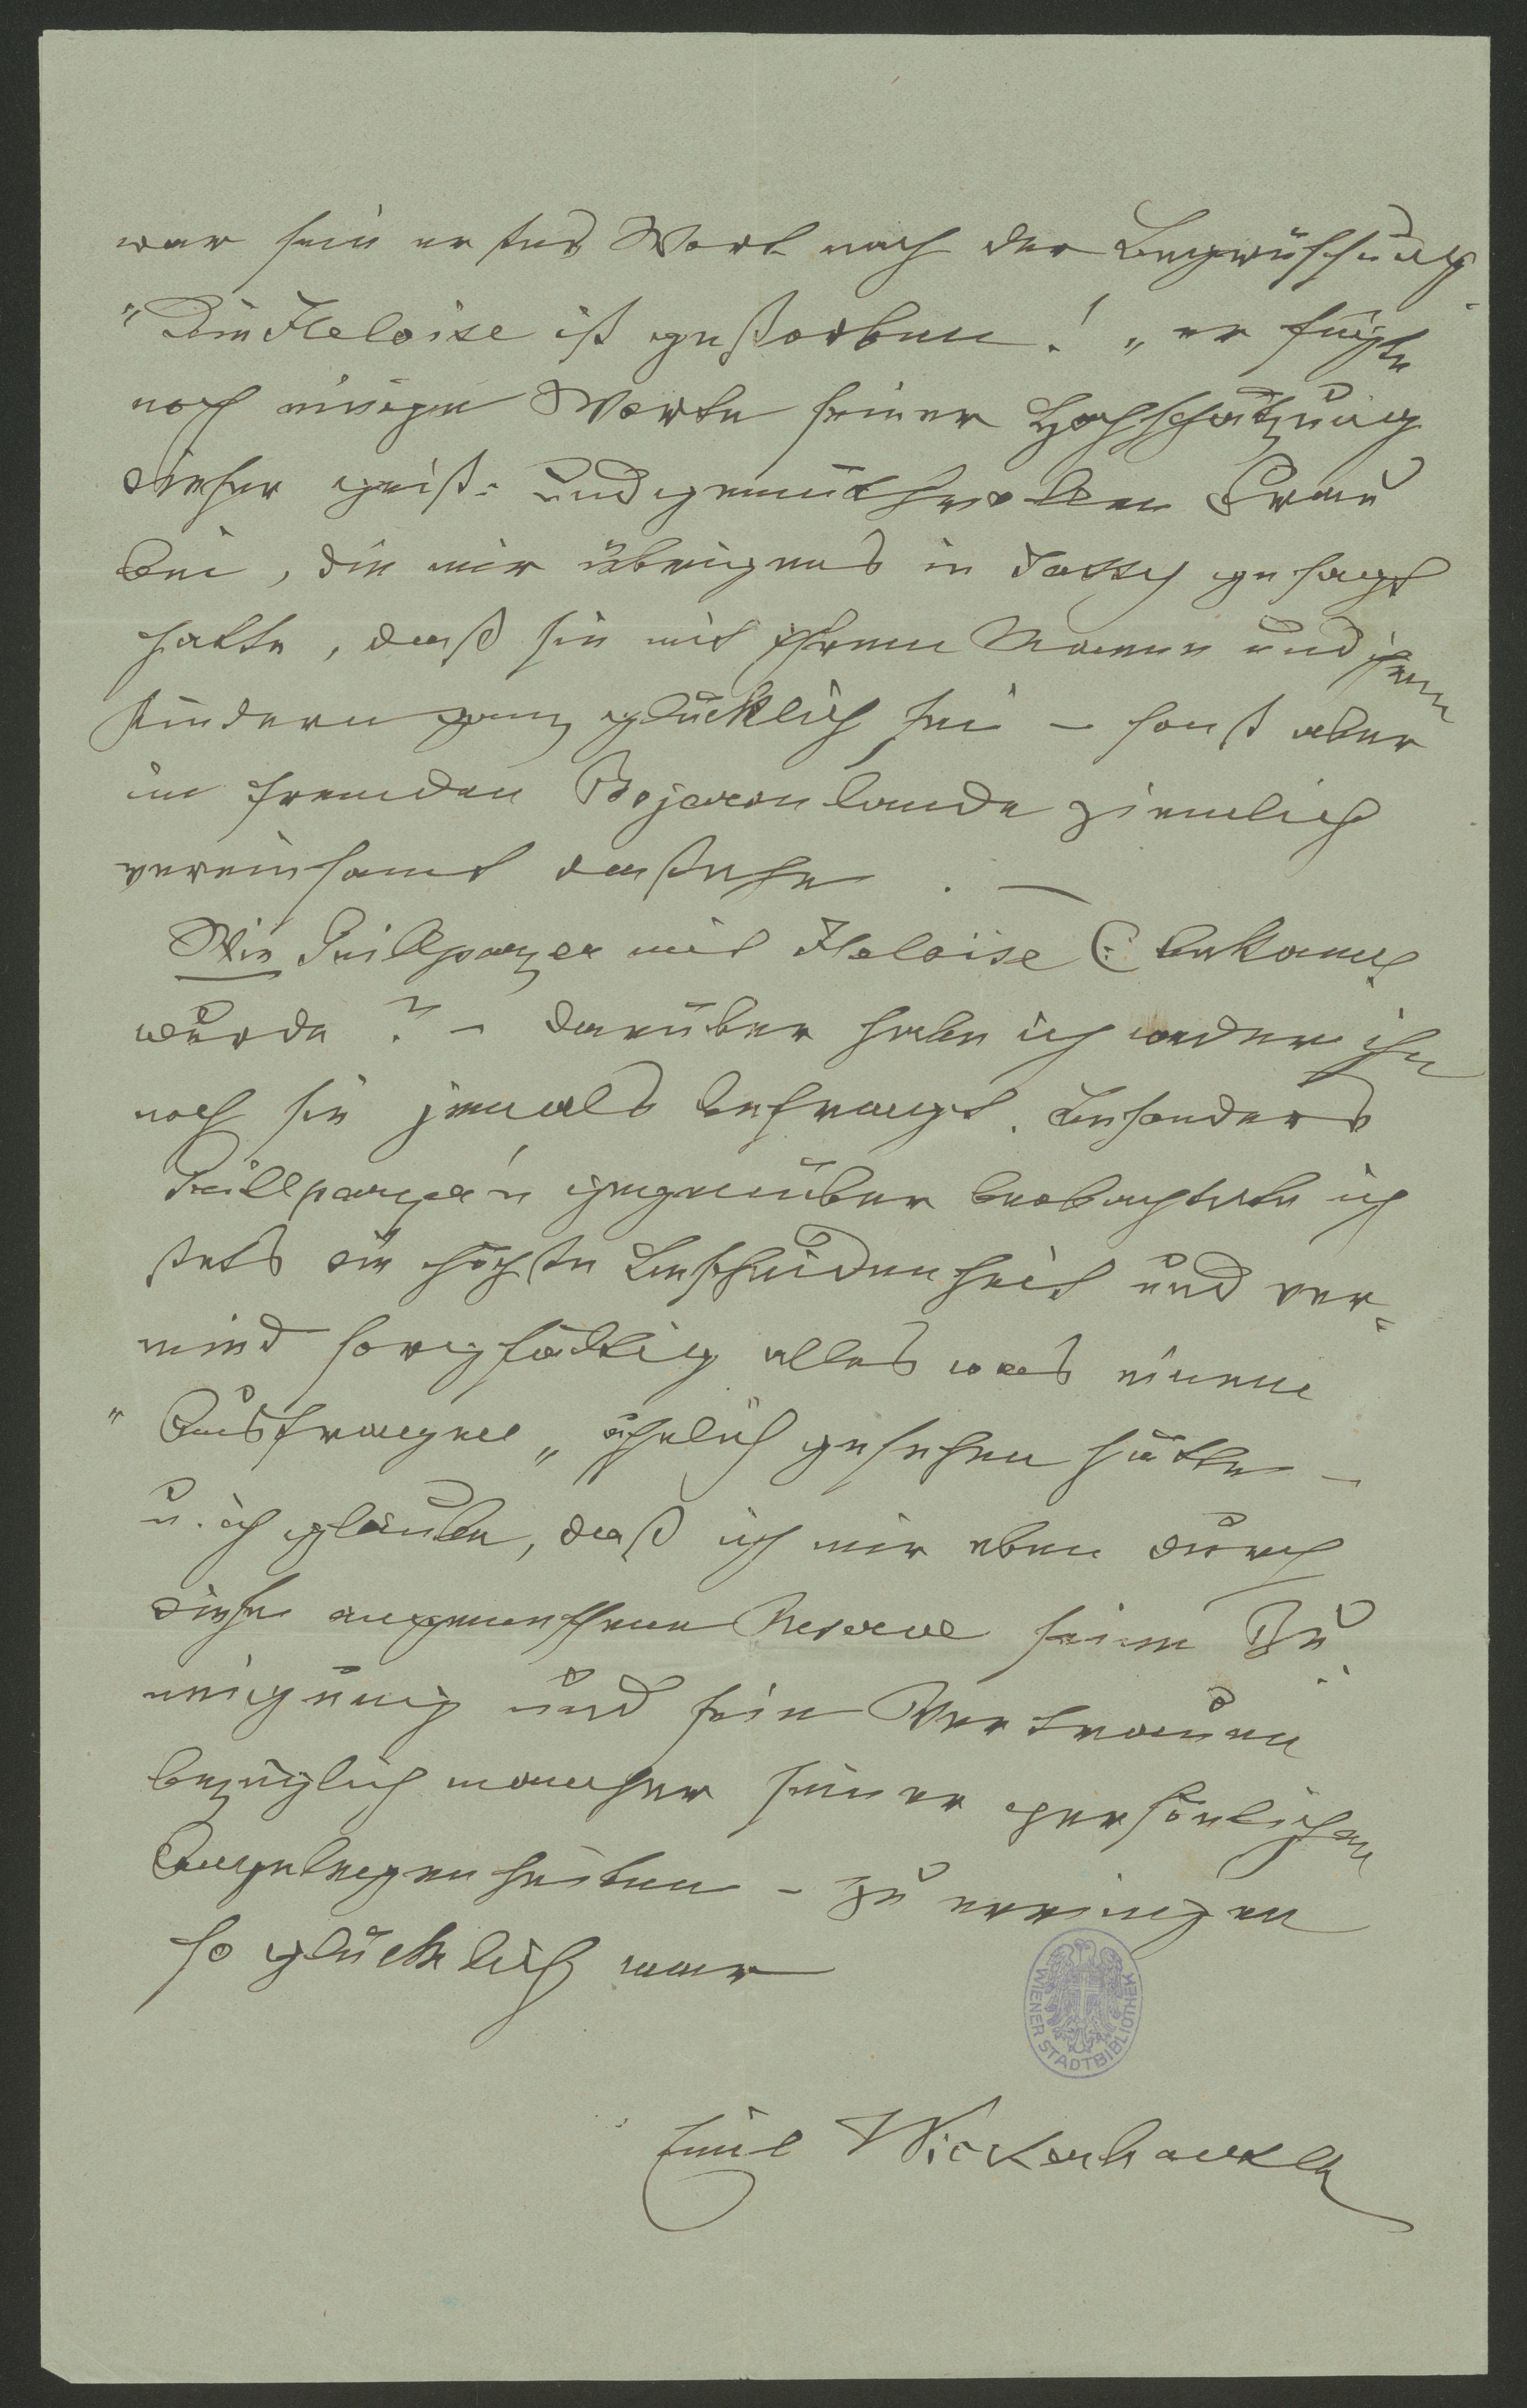 war sein erstes Wort nach der Begrüssung
"Die Heloise ist gestorben! „ er fügte
noch einige Worte seiner Hochschätzung
dieser geist- und gemüthsvollen Frau
bei, die mir übrigens in Jassy gesagt
hatte, daß sie mit ihrem Manne und ihren
Kindern ganz glücklich sei – sonst aber
im fremden Bojarenlande ziemlich
vereinsamt dastehe. —
Wie Grillparzer mit Heloise C: bekannt
wurde? – darüber habe ich weder ihn
noch sie jemals befragt. Besonders
Grillparzer'n gegenüber beobachtete ich
stets die höchste Bescheidenheit und ver-
mied sorgfältig alles was einem
"Ausfragen„ ähnlich gesehen hätte –
u. ich glaube, daß ich mir eben durch
diese angemessene Reserve seine Zu-
neigung und sein Vertrauen
bezüglich mancher seiner persönlichen
Angelegenheiten – zu erringen
so glücklich war
WIENER STADTBIBLIOTHEK
Emil Wickerhauser